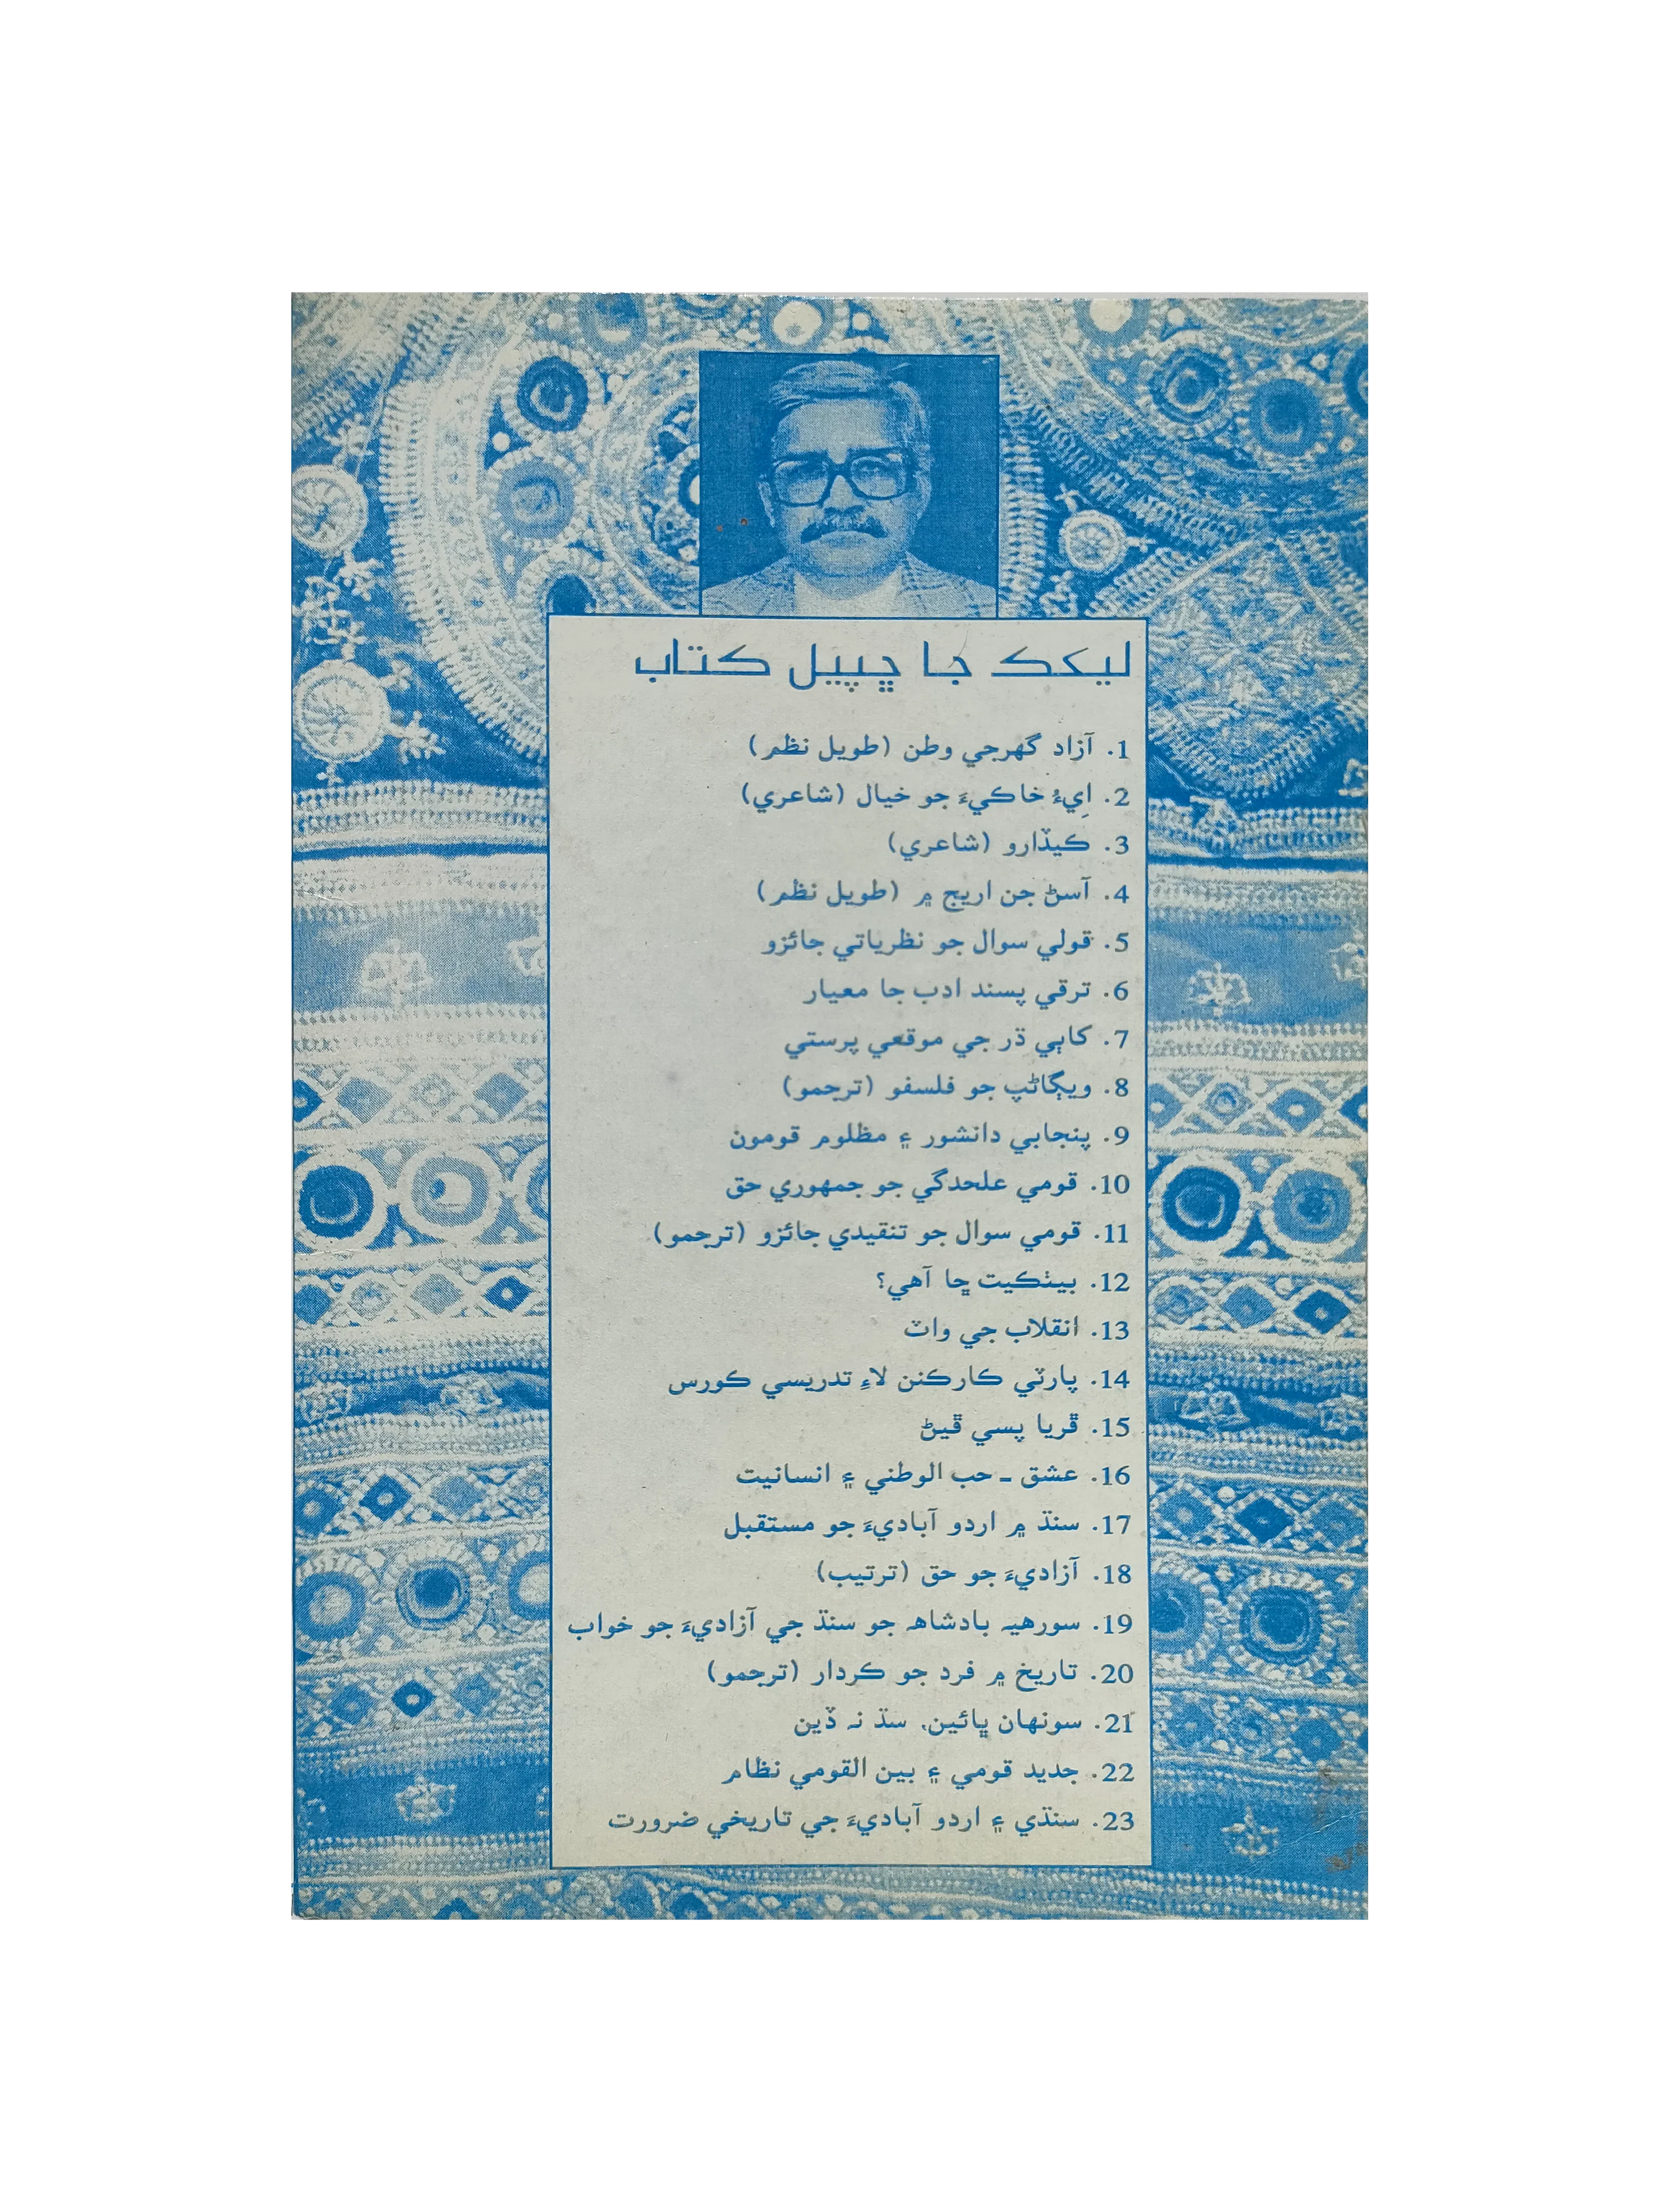 ليکڪ جا ڇپيل ڪتاب
1. آزاد گهرجي وطن (طويل نظم)
2. اِيءُ خاڪيءَ جو خيال (شاعري)
3. ڪيڏارو (شاعري)
4. آسڻ جن اريج ۾ (طويل نظم)
5. قولي سوال جو نظرياتي جائزو
6. ترقي پسند ادب جا معيار
7. کاٻي ڌر جي موقعي پرستي
8. ويڳاڻپ جو فلسفو (ترجمو)
9. پنجابي دانشور ۽ مظلوم قومون
10. قومي علحدگي جو جمهوري حق
11. قومي سوال جو تنقيدي جائزو (ترجمو)
12. بيٺڪيت ڇا آهي؟
13. انقلاب جي واٽ
14. پارٽي ڪارڪنن لاءِ تدريسي ڪورس
15. ڦريا پسي ڦيڻ
16. عشق ـ حب الوطني ۽ انسانيت
17. سنڌ ۾ اردو آباديءَ جو مستقبل
18. آزاديءَ جو حق (ترتيب)
19. سورهيہ بادشاهہ جو سنڌ جي آزاديءَ جو خواب
20. تاريخ ۾ فرد جو ڪردار (ترجمو)
21. سونهان ڀائين، سڌ نہ ڏين
22. جديد قومي ۽ بين القومي نظام
23. سنڌي ۽ اردو آباديءَ جي تاريخي ضرورت